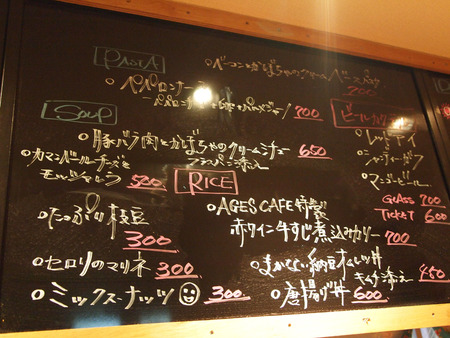 PASTA
ベーコンとかぼちゃのクリーム
700
ペペロンチーノ
700
SOUP
豚バラ肉とかぼちゃのクリームシチュー
フランスパン添え 650
カマンベールチーズと
モッツァレラ 500
RICE
たっぷり枝豆
300
セロリのマリネ 300
ミックスナッツ 300
AGES CAFE特製
赤ワイン牛すじ煮込みカリー
700
まかない納豆オムレツ丼
キムチ添え 450
唐揚げ丼 600
ビールカクテル
レッドアイ
シャンディーガフ
マンゴービール
GLASS 700
TICKET 600